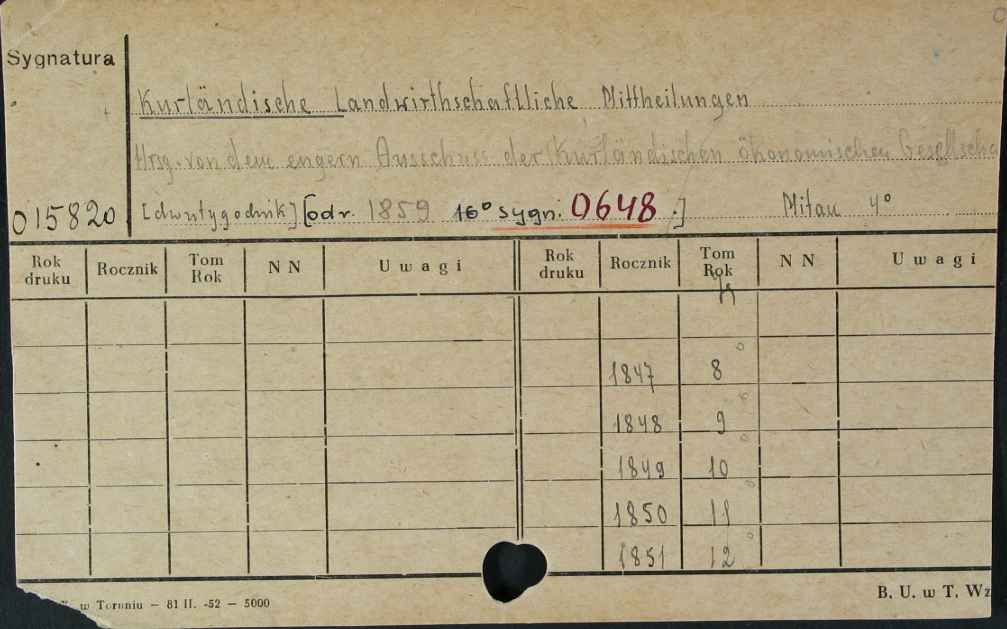 Sygnatura
Kurländische Landwirthschaftliche Mittheilungen
Hrsg. von dem engern Ausschuss der Kurländischen ökonomischen Gesellscha
015820 [dwutygodnik] [odr. 1859 16° sygn. 0648 .] Mitau 4°
Rok druku Rocznik Tom Rok N N Uwagi Rok druku Rocznik Tom Rok N N Uwagi
1847 8
1848 9
1849 10
1850 11
1851 12
w Toruniu — 81 II. -52 — 5000
B. U. w T. Wz